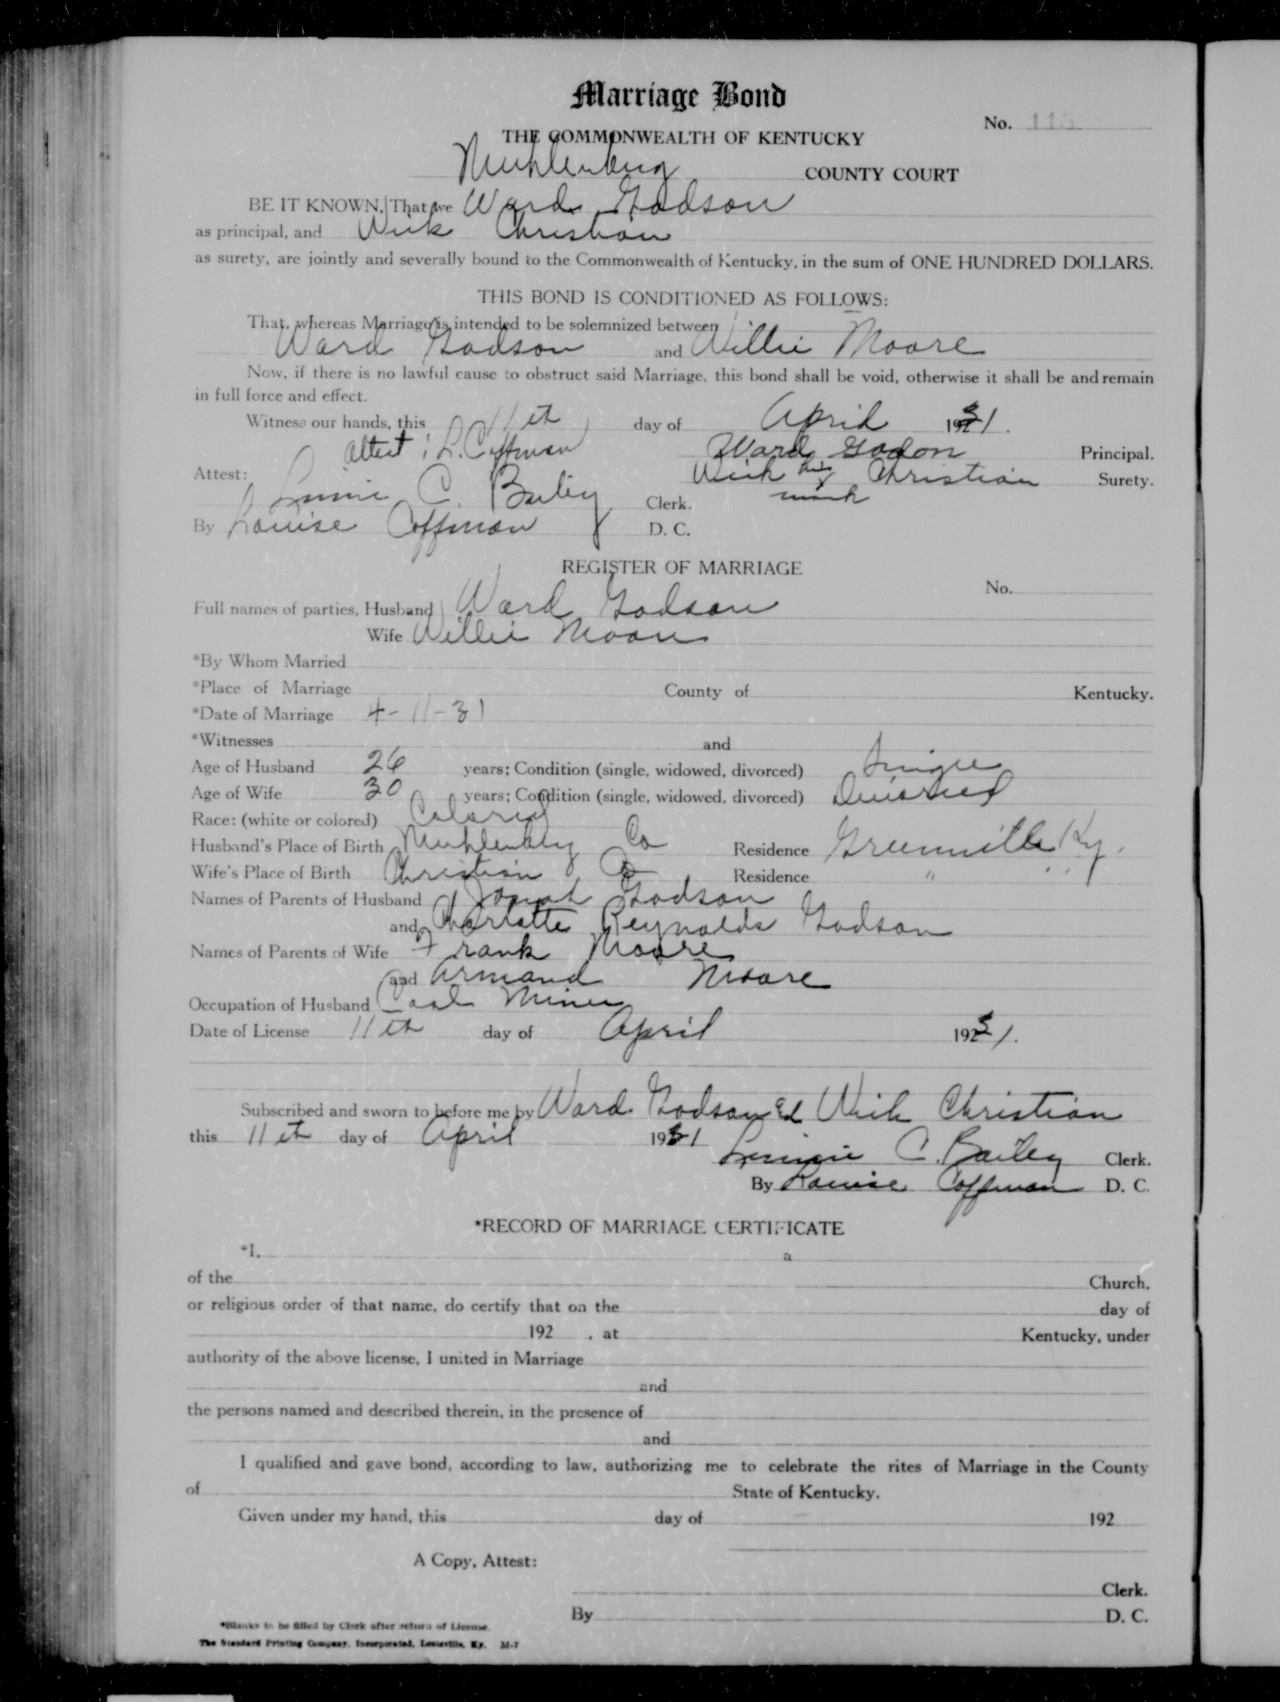 Marriage Bond
No. 115
THE COMMONWEALTH OF KENTUCKY
Muhlenberg COUNTY COURT
BE IT KNOWN, That we Ward Godson
as principal, and Wick Christian
as surety, are jointly and severally bound to the Commonwealth of Kentucky, in the sum of ONE HUNDRED DOLLARS.
THIS BOND IS CONDITIONED AS FOLLOWS:
That, whereas Marriage is intended to be solemnized between
Ward Godson and Willie Moore
Now, if there is no lawful cause to obstruct said Marriage, this bond shall be void, otherwise it shall be and remain
in full force and effect.
Witness our hands, this 11th day of April 1931.
Attest: L. Coffman Ward Godon Principal.
Attest: Wick his x Christian Surety.
mark
Lennie C. Bailey Clerk.
By Louise Coffman D. C.
REGISTER OF MARRIAGE
No.
Full names of parties, Husband Ward Godson
Wife Willie Moore
*By Whom Married
*Place of Marriage County of Kentucky.
*Date of Marriage 4-11-31
*Witnesses and
Age of Husband 26 years; Condition (single, widowed, divorced) Single
Age of Wife 30 years; Condition (single, widowed, divorced) Divorced
Race: (white or colored) Colored
Husband's Place of Birth Muhlenberg Co Residence Greenville Ky.
Wife's Place of Birth Christian Co Residence " "
Names of Parents of Husband Josiah Godson
and Charlotte Reynolds Godson
Names of Parents of Wife Frank Moore
and Armand Moore
Occupation of Husband Coal Miner
Date of License 11th day of April 1931.
Subscribed and sworn to before me by Ward Godson & Wick Christian
this 11th day of April 1931
Lennie C. Bailey Clerk.
By Louise Coffman D. C.
*RECORD OF MARRIAGE CERTIFICATE
*I, a
of the Church,
or religious order of that name, do certify that on the day of
192 , at Kentucky, under
authority of the above license, I united in Marriage
and
the persons named and described therein, in the presence of
and
I qualified and gave bond, according to law, authorizing me to celebrate the rites of Marriage in the County
of State of Kentucky.
Given under my hand, this day of 192
A Copy, Attest:
Clerk.
By D. C.
*Blanks to be filled by Clerk after return of License.
The Standard Printing Company, Incorporated, Louisville, Ky. M-7